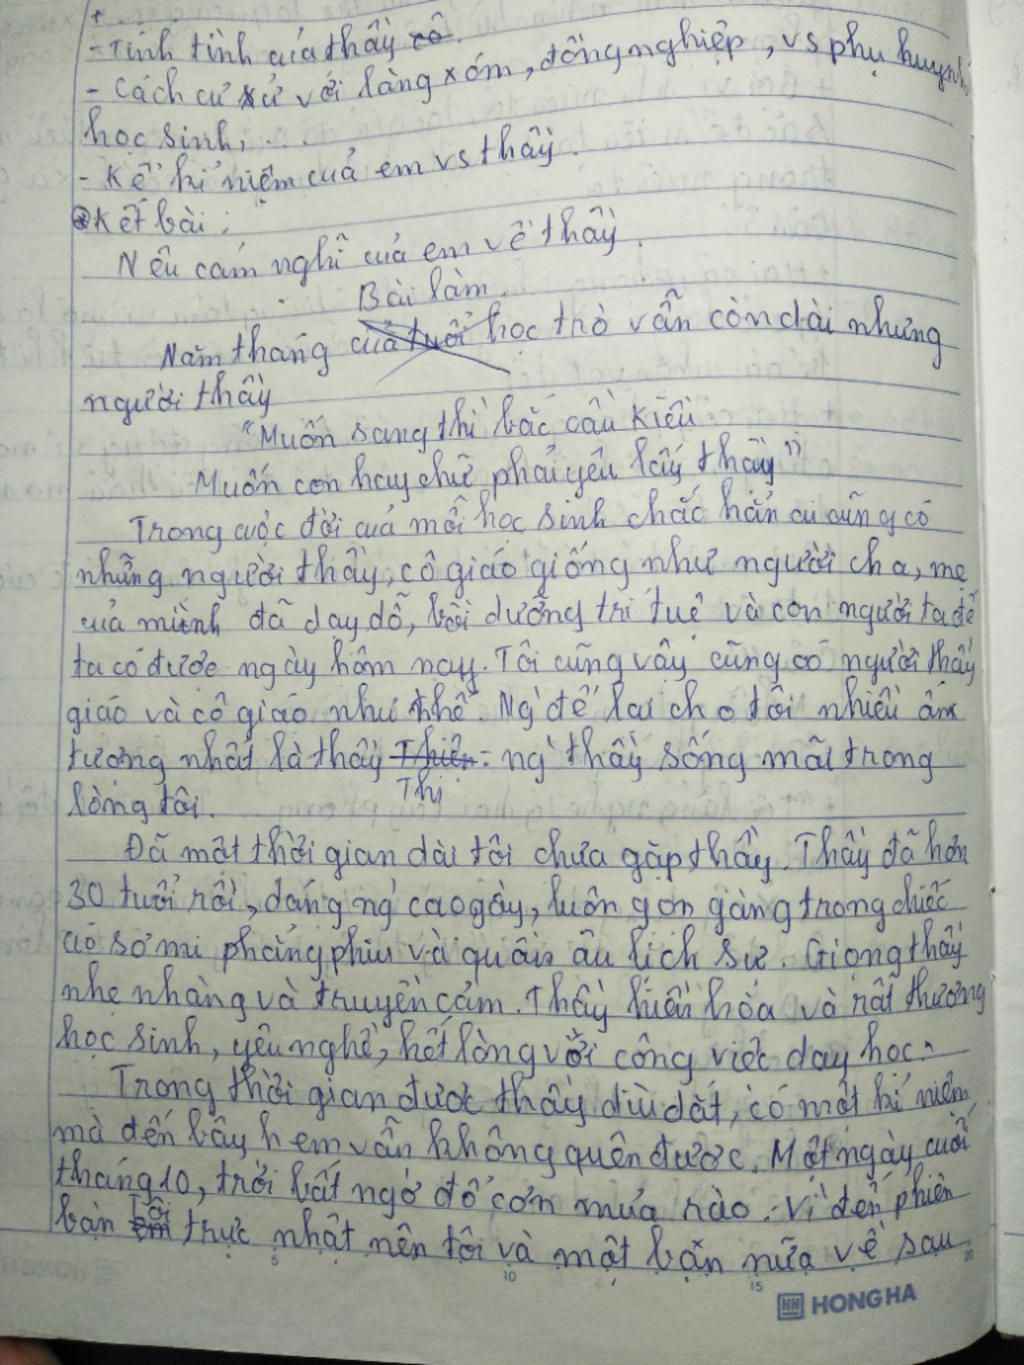 +
- Tính tình của thầy cô.
- Cách cư xử với làng xóm, đồng nghiệp, vs phụ huynh,
học sinh, ...
- Kể kỉ niệm của em vs thầy.
* Kết bài:
Nêu cảm nghĩ của em về thầy.
Bài làm.
Năm tháng của tuổi học trò vẫn còn dài nhưng
người thầy
"Muốn sang thì bắc cầu Kiều
Muốn con hay chữ phải yêu lấy thầy"
Trong cuộc đời của mỗi học sinh chắc hẳn ai cũng có
những người thầy, cô giáo giống như người cha, mẹ
của mình đã dạy dỗ, bồi dưỡng trí tuệ và con người ta để
ta có được ngày hôm nay. Tôi cũng vậy cũng có người thầy
giáo và cô giáo như thế. Ng' để lại cho tôi nhiều ấn
tượng nhất là thầy Thiện: ng' thầy sống mãi trong
Thị
lòng tôi.
Đã một thời gian dài tôi chưa gặp thầy. Thầy đã hơn
30 tuổi rồi, dáng ng' cao gầy, luôn gọn gàng trong chiếc
áo sơ mi phẳng phiu và quần âu lịch sự. Giọng thầy
nhẹ nhàng và truyền cảm. Thầy hiền hòa và rất thương
học sinh, yêu nghề, hết lòng với công việc dạy học.
Trong thời gian được thầy dìu dắt, có một kỉ niệm
mà đến bây h em vẫn không quên được. Một ngày cuối
tháng 10, trời bất ngờ đổ cơn mưa rào. Vì đến phiên
bàn em tôi trực nhật nên tôi và một bạn nữa về sau
5 10 15 20
HONG HA